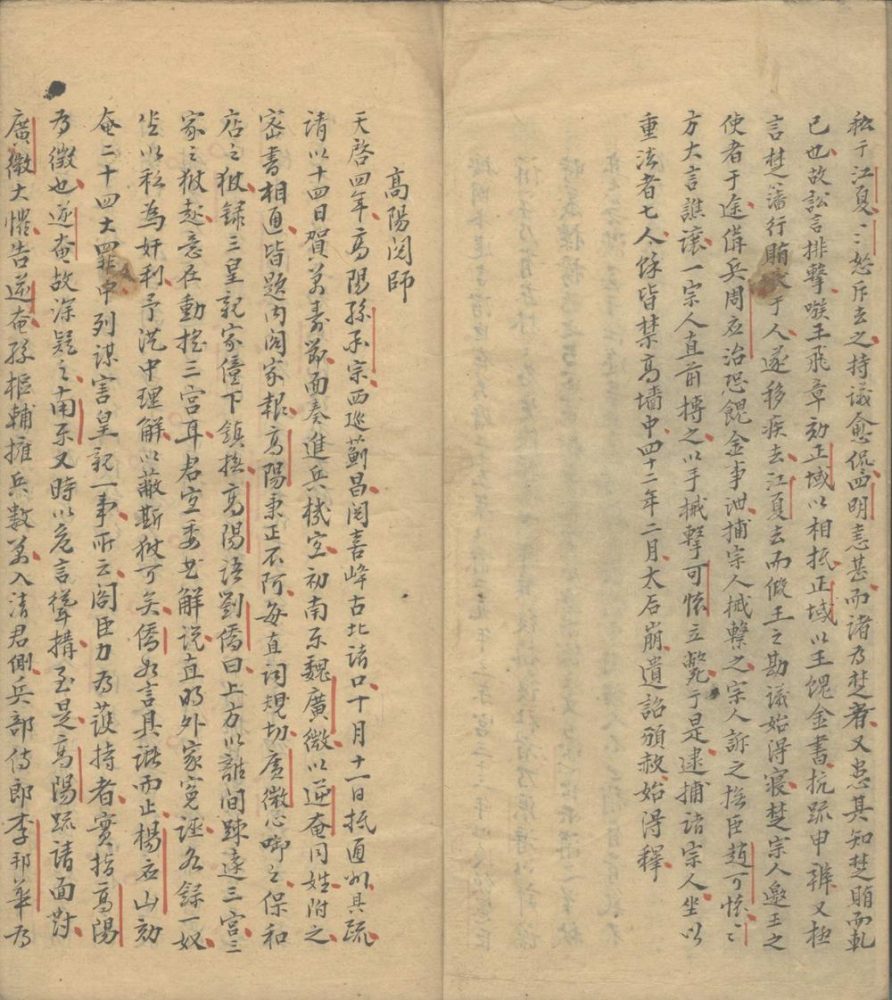 私于江夏〻怒斥去之持議愈侃四明恚甚而諸為楚者又患其知楚賄而軋
已也故訟言排擊嗾王飛章劾正域以相抵正域以王餽金書抗疏申辨又極
言楚藩行賄狀于人遂移疾去江夏去而假王之勘議始得寢楚宗人邀王之
使者于途偹兵周应治恐餽金事泄捕宗人械繫之宗人訴之撫臣趙可懷〻
方大言譙讓一宗人直前搏之以手械擊可懷立斃于是逮捕諸宗人坐以
重法者七人餘皆禁高墻中四十二年二月太后崩遺詔頒赦始得釋
高陽閱師
天啓四年高陽孫承宗西巡薊昌閱喜峰古北諸口十月十一日抵通州具疏
請以十四日賀萬壽節面奏進兵機宜初南乐魏廣微以逆奄同姓附之
密書相通皆題内閣家報高陽秉正不阿每直詞規切廣微心啣之保和
店之獄録三皇親家僮下鎮撫高陽語劉僑曰上方以誰間踈遠三宮三
家之獄起意在動搖三宮耳君宜委曲解説直明外家寃誣名錄一奴
坐以私為奸利予從中理解以蔽斯獄可矣僑如言具讞而止楊石山劾
奄二十四大罪中列謀害皇親一事所云閣臣力為護持者實指高陽
為徵也逆奄故深疑之南乐又時以危言聳搆至是高陽疏請面對
廣微大懼告逆奄孫樞輔擁兵數萬入清君側兵部侍郎李邦華為